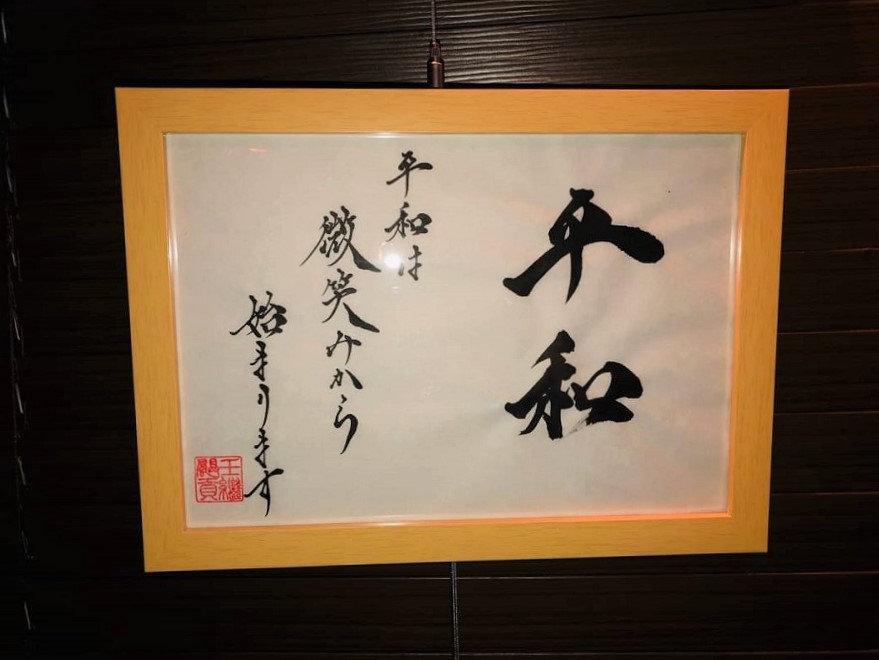 平和
平和は
微笑みから
始まります